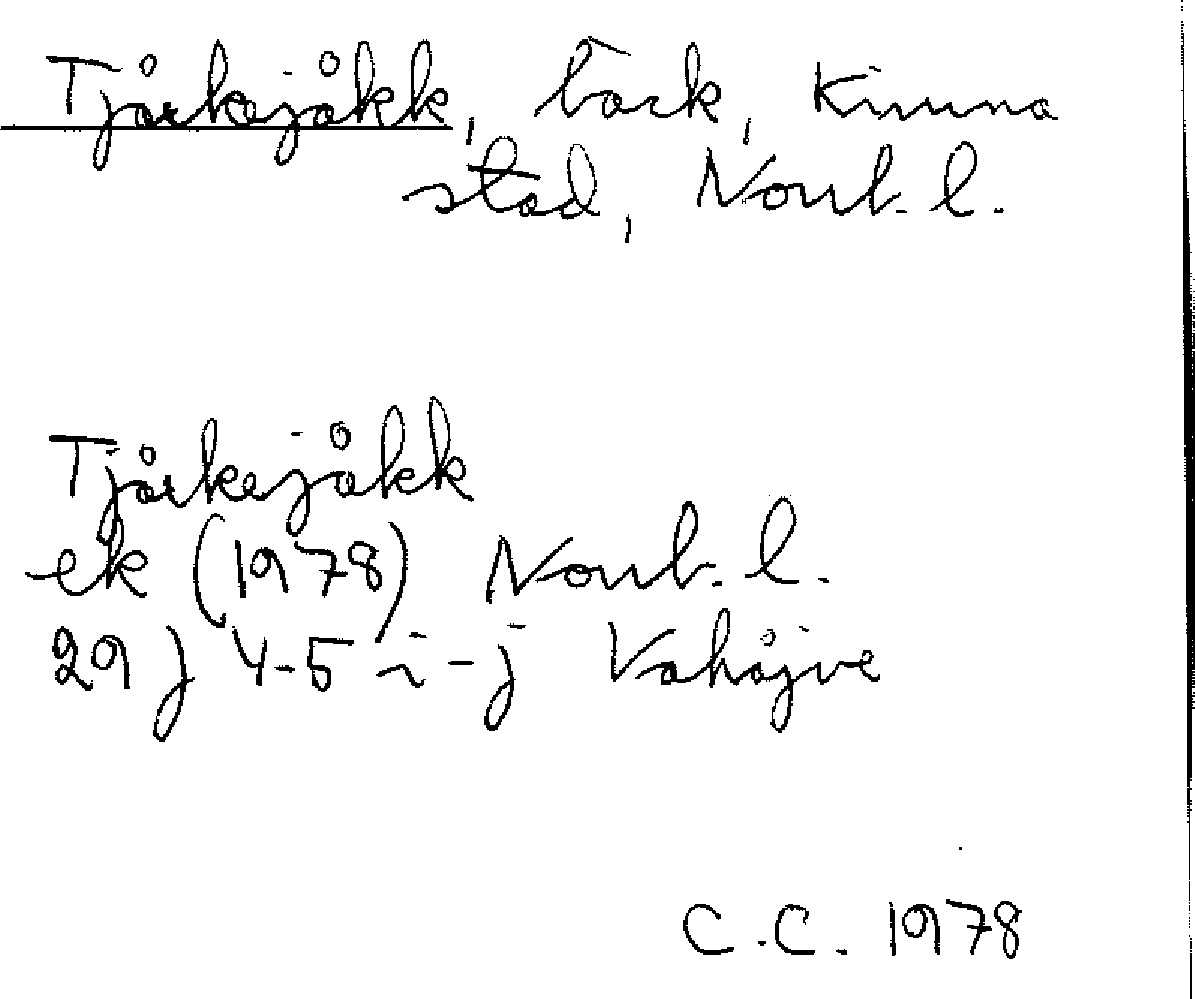 Tjårkajåkk, bäck, Kiruna
stad, Norrb. l.
Tjårkejåkk
ek (1978) Norrb. l.
29 J 4-5 i-j Vahåjve
C.C. 1978